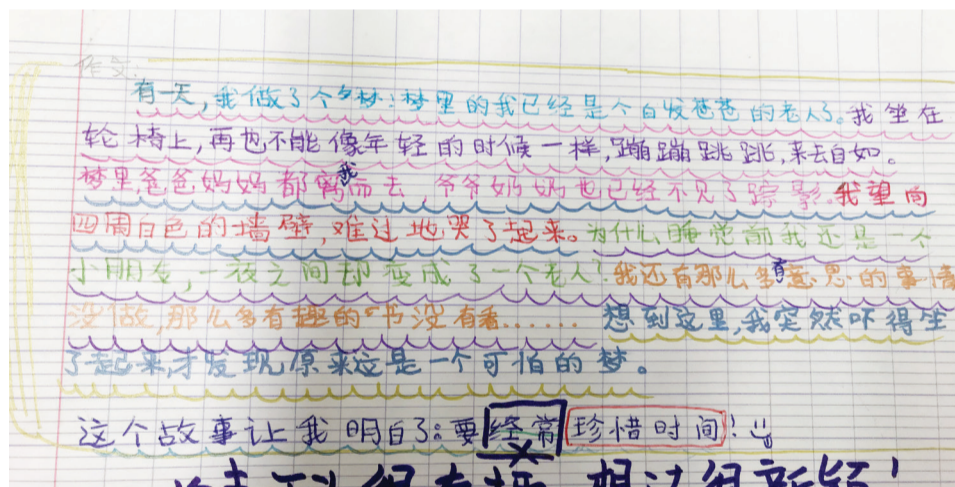 作文:
有一天,我做了个梦:梦里的我已经是个白发爸爸的老人了。我坐在
轮椅上,再也不能像年轻的时候一样,蹦蹦跳跳,来去自如。
梦里,爸爸妈妈都离我而去,爷爷奶奶也已经不见了踪影。我望向
四周白色的墙壁,难过地哭了起来。为什么睡觉前我还是一个
小朋友,一夜之间却变成了一个老人?我还有那么多有意思的事情
没做,那么多有趣的书没有看......想到这里,我突然吓得坐
了起来,才发现原来这是一个可怕的梦。
这个故事让我明白了:要经常珍惜时间!
想法很新颖!